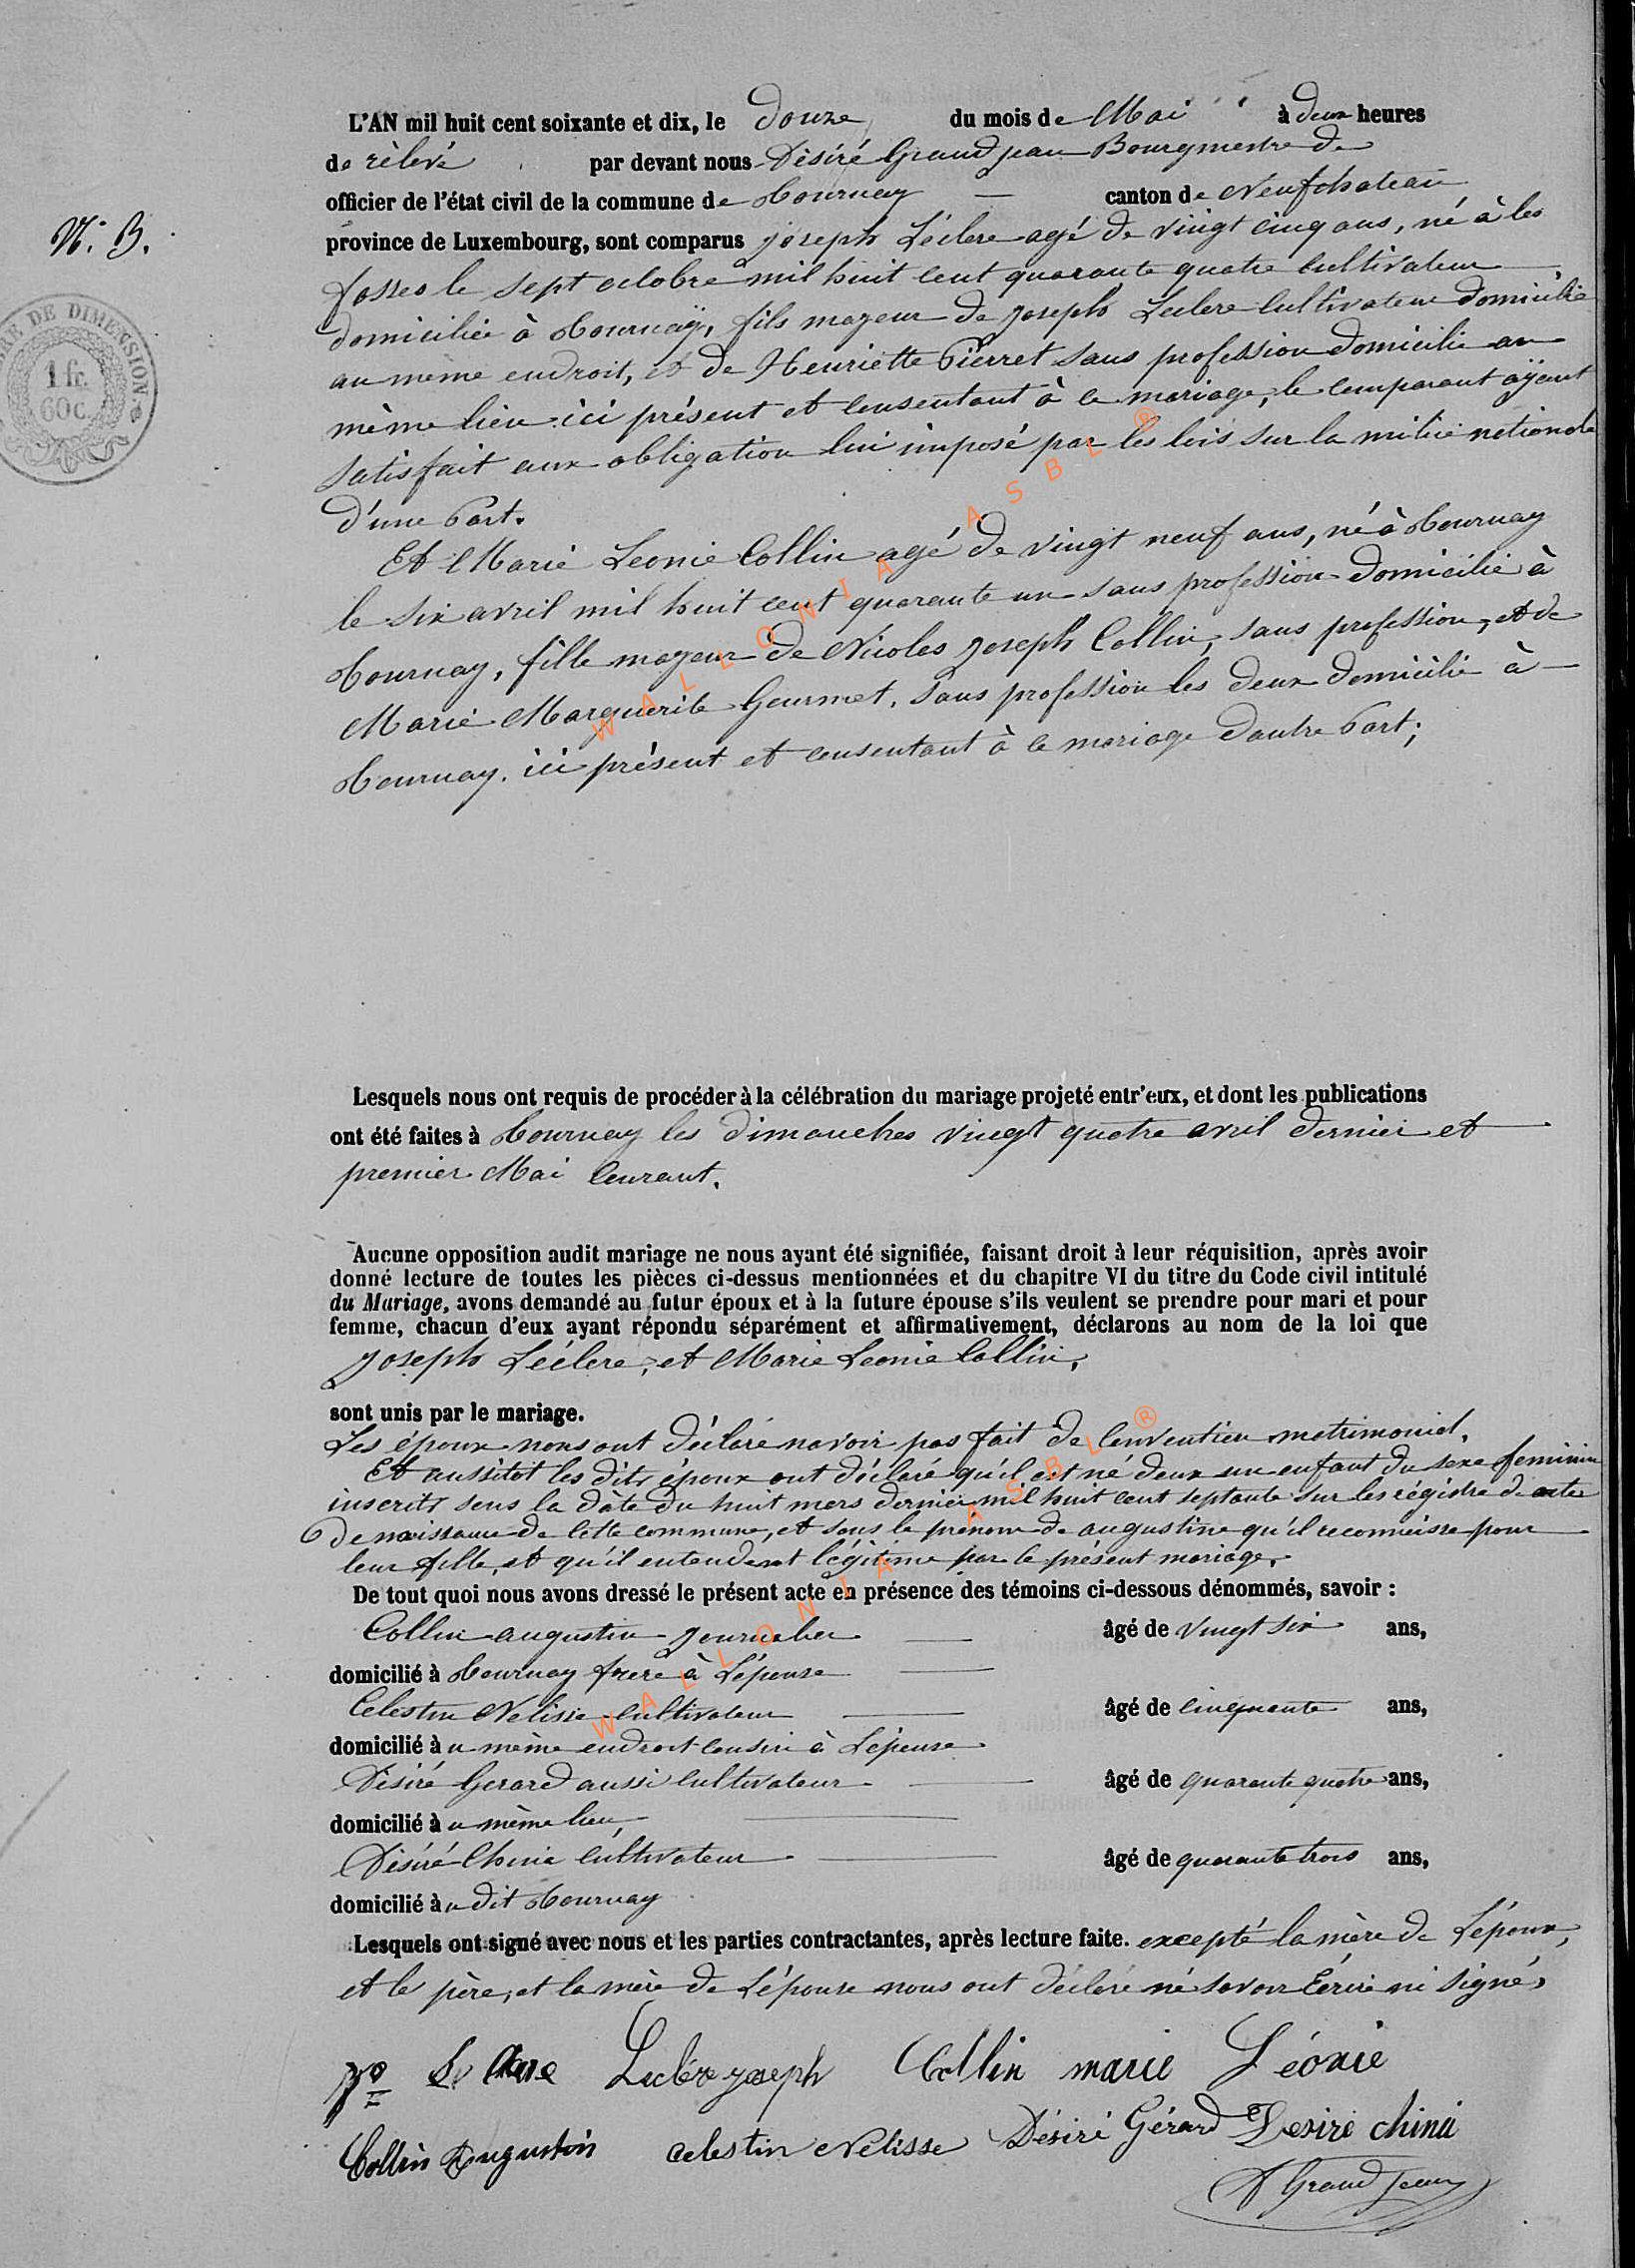 L'AN mil huit cent soixante et dix, le douze du mois de Mai à deux heures
de rèlevé par devant nous Désiré Grandjean Bourgmestre de
officier de l'état civil de la commune de Tournay — canton de Neufchateau
N. B.
province de Luxembourg, sont comparus joseph Léclere agé de vingt cinq ans, né à les
fosses le sept octobre mil huit cent quarante quatre cultivateur
TIMBRE DE DIMENSION
1 fr.
60 c.
domicilié à Tournaÿ, fils mageur de joseph Leclere cultivateur domicilié
au même endroit, et de Henriette Pierret sans profession domicilie au
même lieu ici présent et consentant à ce mariage, le comparant aÿant
satisfait aux obligation lui imposé par les lois sur la milice nationale
d'une Part.
Et Marie Leonie Collin agé de vingt neuf ans, né à Tournay
le six avril mil huit cent quarante un sans profession domicilié à
Tournay, fille mageur de Nicolas joseph Collin, sans profession, et de
Marie Marguerite Gourmet, sans profession les deux domicilié à
Tournay. ici présent et consentant à ce mariage dautre Part;
WALLONIA ASBL ®
Lesquels nous ont requis de procéder à la célébration du mariage projeté entr'eux, et dont les publications
ont été faites à Tournay les dimanches vingt quatre avril dernier et
premier Mai courant.
Aucune opposition audit mariage ne nous ayant été signifiée, faisant droit à leur réquisition, après avoir
donné lecture de toutes les pièces ci-dessus mentionnées et du chapitre VI du titre du Code civil intitulé
du Mariage, avons demandé au futur époux et à la future épouse s'ils veulent se prendre pour mari et pour
femme, chacun d'eux ayant répondu séparément et affirmativement, déclarons au nom de la loi que
joseph Léclere, et Marie Leonie Collin,
sont unis par le mariage.
Les époux nous ont déclaré navoir pas fait de convention matrimonial.
Et aussitot les dits époux ont déclaré qu'il est né deux un enfant du sexe feminin
inscrits sous la dâte du huit mars dernier mil huit cent septante sur les régistre de actes
de naissance de cette commune, et sous le prénom de augustine qu'il reconnaisse pour
leur fille, et qu'il entendent légitime par le présent mariage.
De tout quoi nous avons dressé le présent acte en présence des témoins ci-dessous dénommés, savoir :
Collin augustin journalier — âgé de vingt six ans,
domicilié à Tournay frere à L'épouse —
Celestin Nelisse cultivateur — âgé de cinquante ans,
domicilié à u même endroit cousin à L'épouse
Désiré Gerard aussi cultivateur — âgé de quarante quatre ans,
domicilié à u même lieu, —
Désiré Chinie cultivateur — âgé de quarante trois ans,
domicilié à u dit Tournay
Lesquels ont signé avec nous et les parties contractantes, après lecture faite. excepté la mère de L'époux,
et le père, et la mère de L'épouse nous ont déclaré né savoir Ecrire ni signé,
Leclère joseph Collin marie Léonie
Collin Augustin celestin Nelisse Désiré Gérard Desiré chini
D Grandjean
WALLONIA ASBL ®